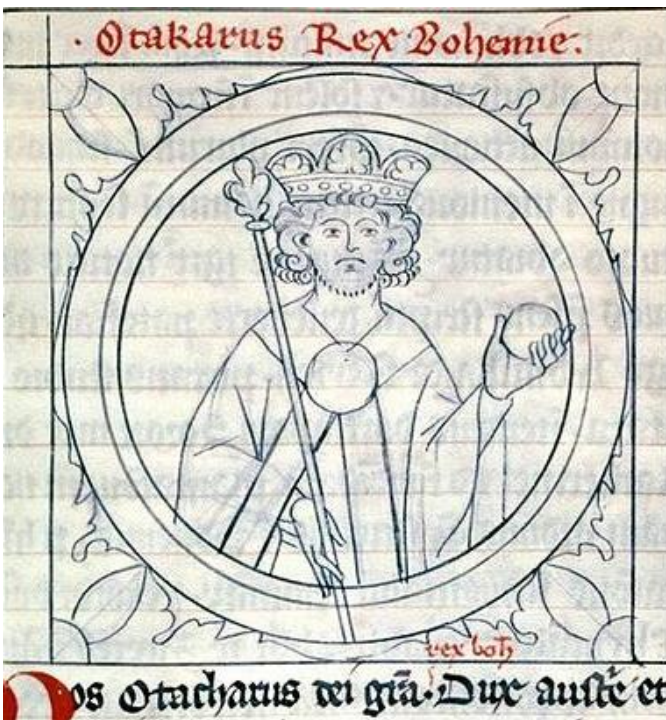 · Otakarus Rex Bohemie.
rex boh
Nos Otacharus dei gr̄a. Dux austr̄e et